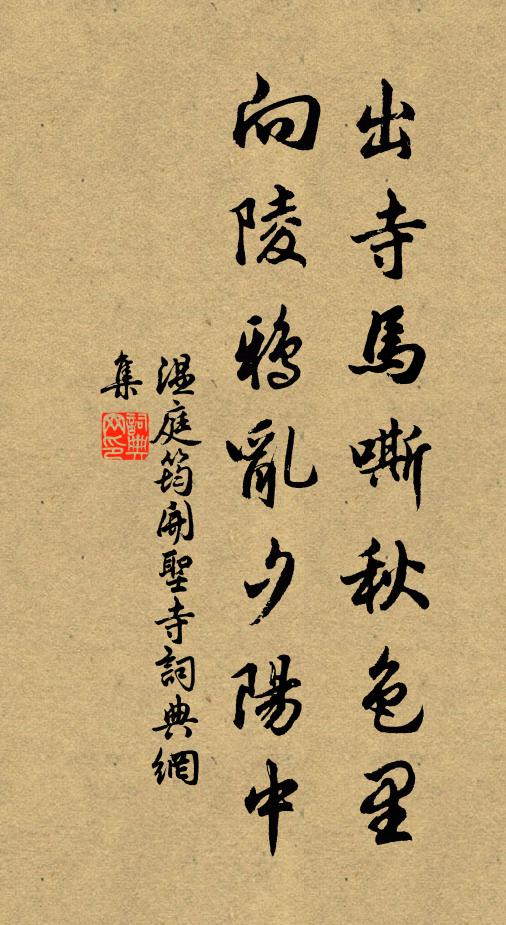 出寺馬嘶秋色里
向陵鴉亂夕陽中
温庭筠開聖寺詞典網
集
詞典
网印